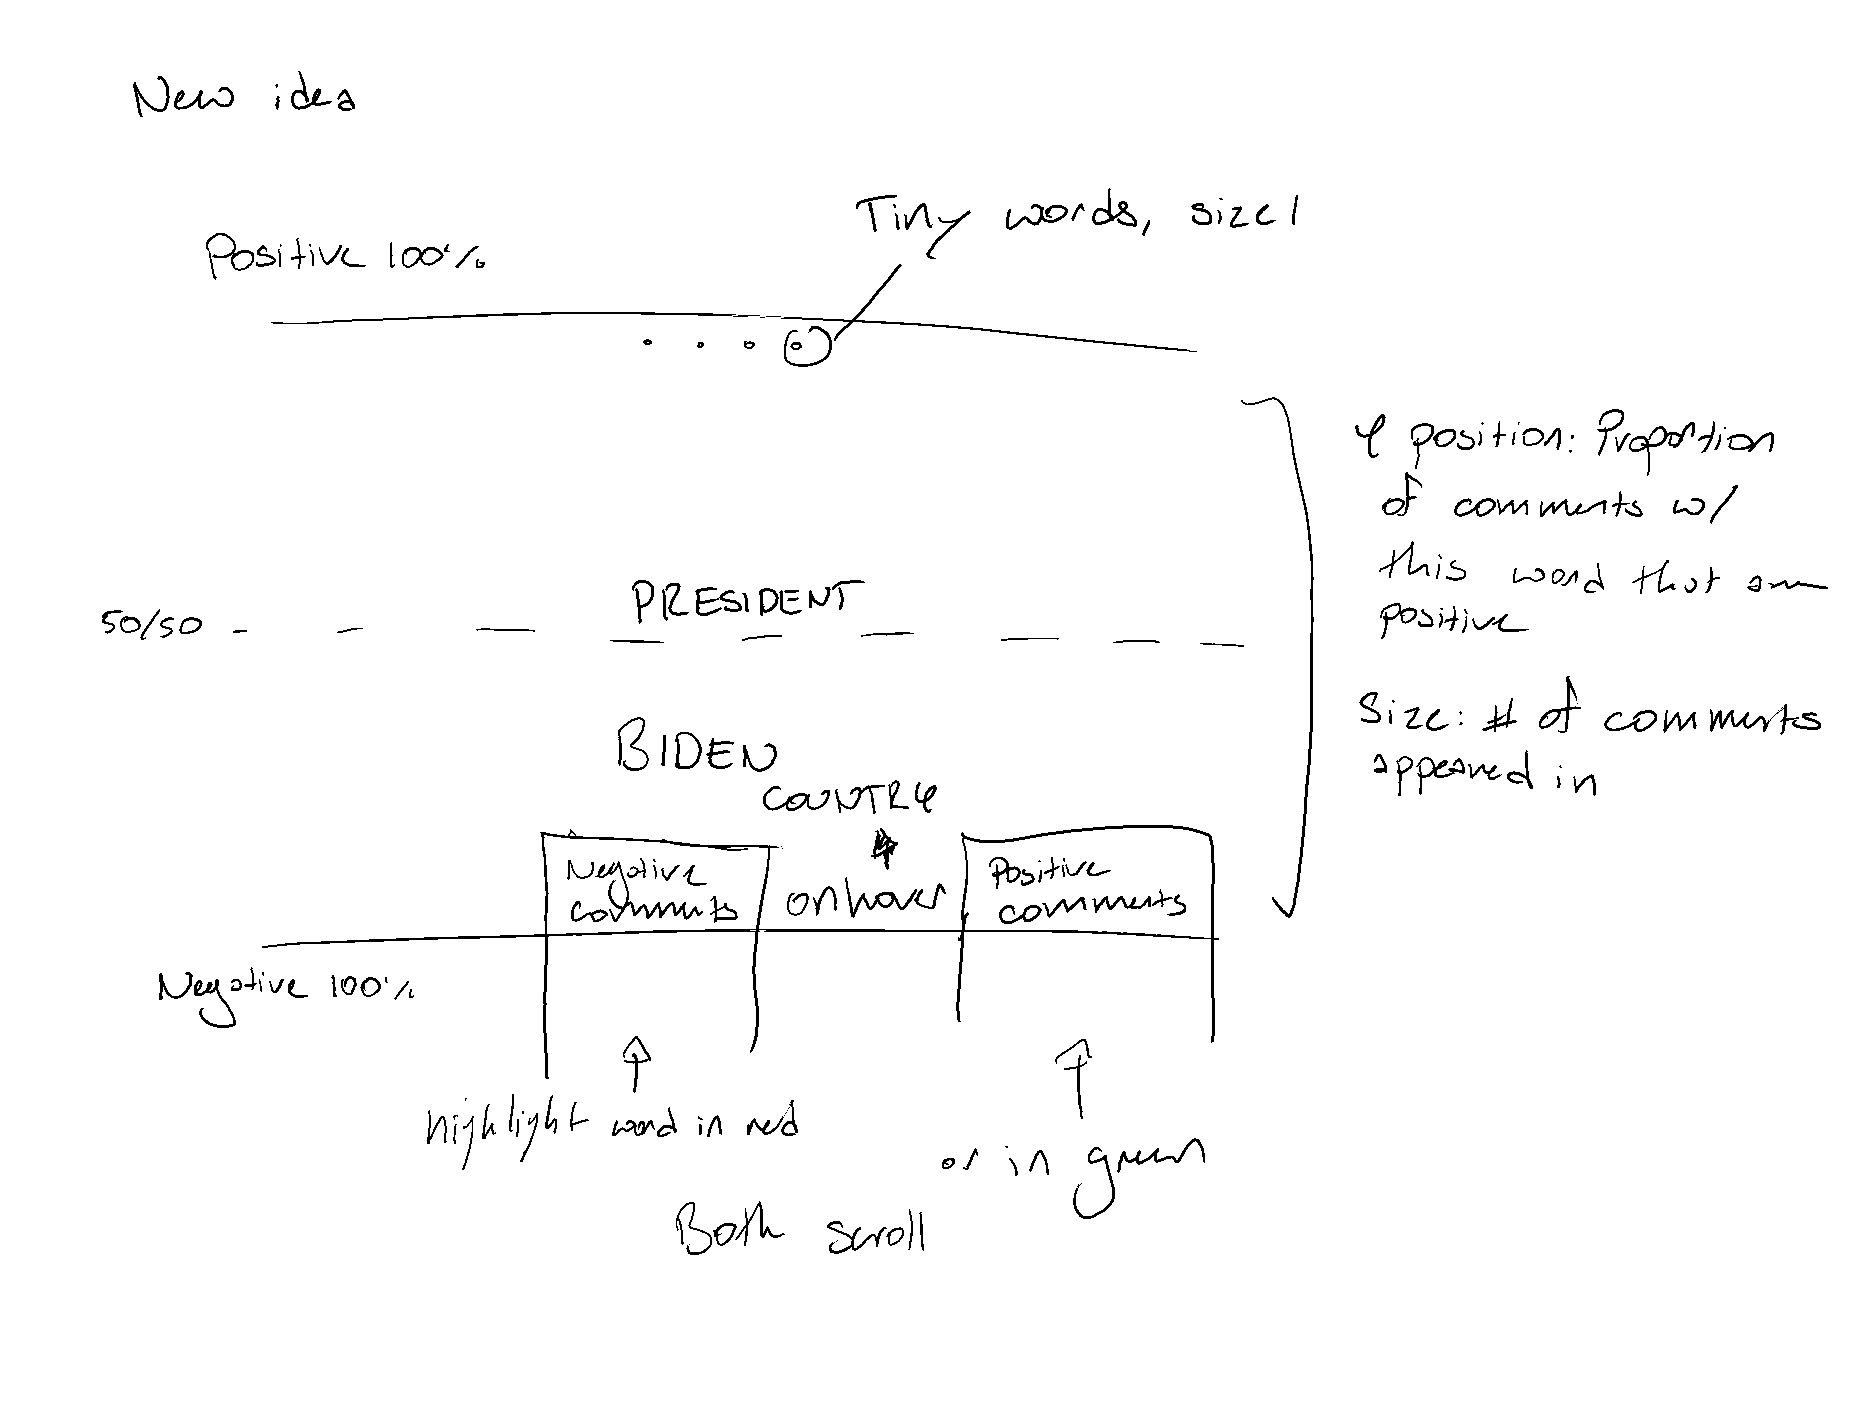 New idea
Tiny words, size 1
Positive 100%
Y position: Proportion
of comments w/
this word that are
positive
50/50
PRESIDENT
Size: # of comments
appeared in
BIDEN
COUNTRY
Negative
comments
on hover
Positive
comments
Negative 100%
highlight word in red
or in green
Both scroll